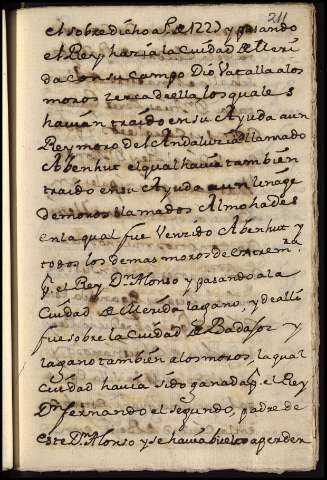 211
el sobre dicho aº de 1227 y pasando
el Rey hazia la Ciudad de Meri
da con su campo Dio Vatalla a los
moros zerca de ella los quales
havian traido en su Ayuda a un
Rey moro de el Andaluzia llamado
Abenhut el qual havia tambien
traido en su Ayuda a un linage
de moros llamados Almohades
en la qual fue Venzido Abenhut y
todos los demas moros de extremra
pr. el Rey Dn. Alonso y pasando a la
Ciudad de Merida la gano, y de alli
fue sobre la Ciudad de Badajoz y
la gano tambien a los moros, la qual
ciudad havia sido ganada pr. el Rey
Dn. fernando el segundo, padre de
este Dn. Alonso y se havia buelto a perder